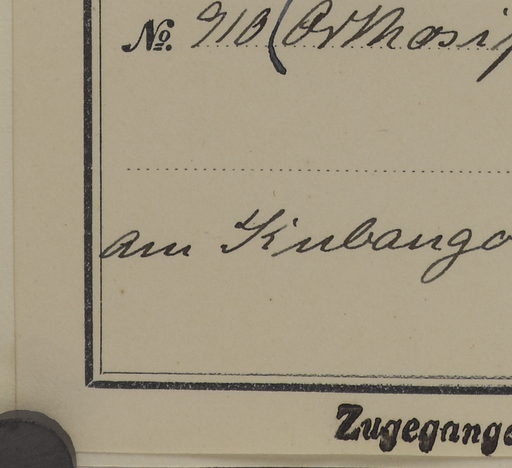 No. 910 (Orthosi
am Kubango
Zugegange